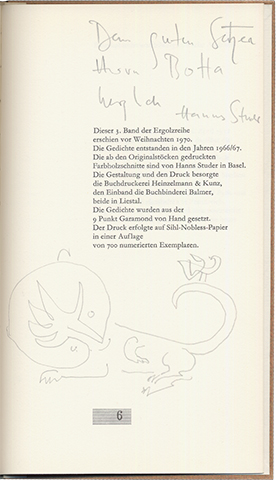 Dem guten Setzer
Herrn Botta
herzlich
Hanns Studer
Dieser 3. Band der Ergolzreihe
erschien vor Weihnachten 1970.
Die Gedichte entstanden in den Jahren 1966/67.
Die ab den Originalstöcken gedruckten
Farbholzschnitte sind von Hanns Studer in Basel.
Die Gestaltung und den Druck besorgte
die Buchdruckerei Heinzelmann & Kunz,
den Einband die Buchbinderei Balmer,
beide in Liestal.
Die Gedichte wurden aus der
9 Punkt Garamond von Hand gesetzt.
Der Druck erfolgte auf Sihl-Nobless-Papier
in einer Auflage
von 700 numerierten Exemplaren.
6